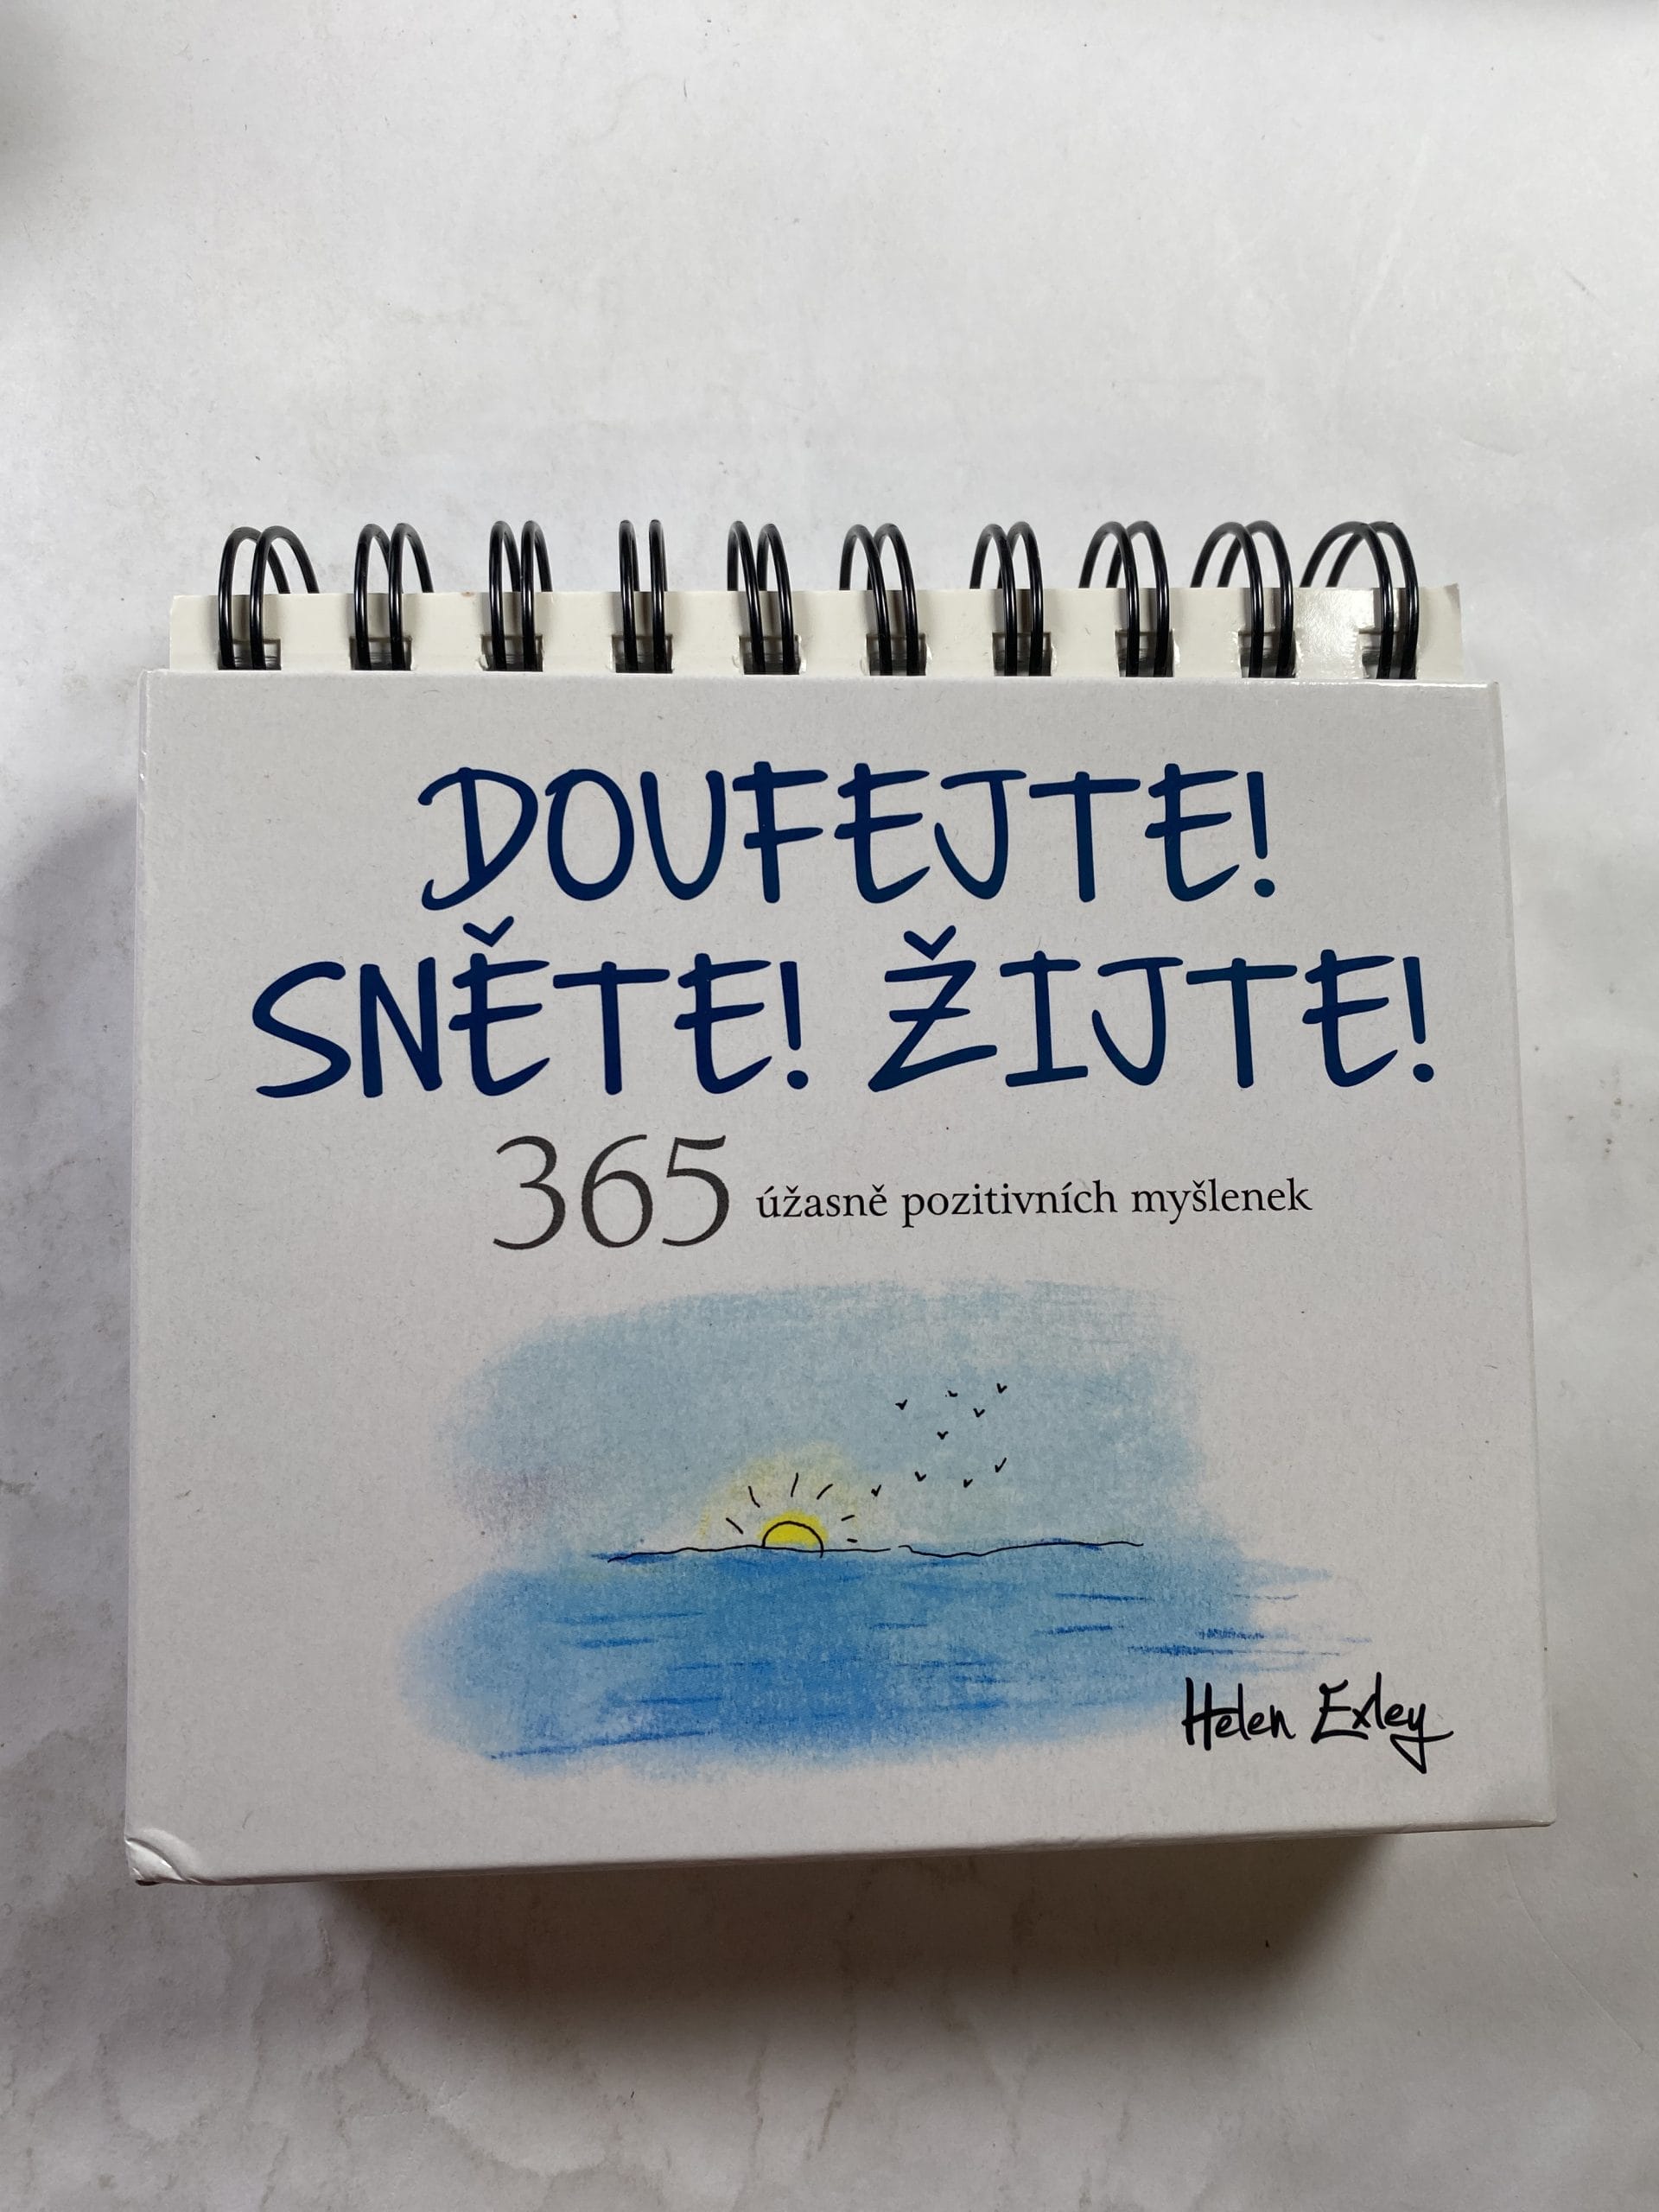 DOUFEJTE!
SNĚTE! ŽIJTE!
365 úžasně pozitivních myšlenek
Helen Exley